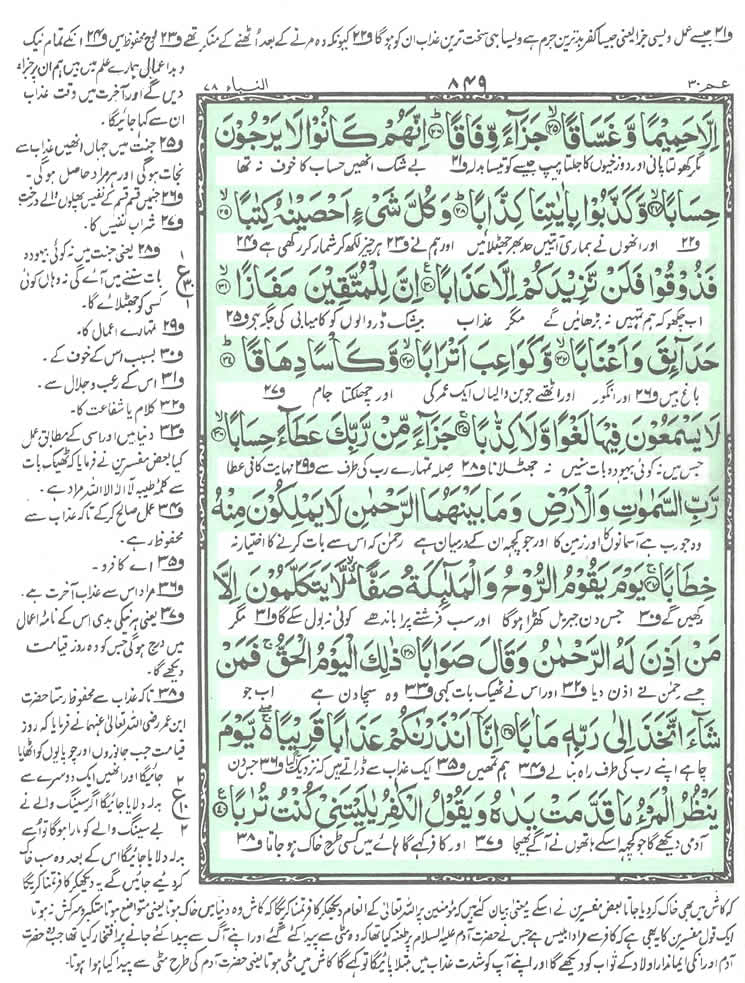 و۲۱ جیسے عمل ویسی جزا یعنی جیسا کفر بدترین جرم ہے ویسا ہی سخت ترین عذاب ان کو ہوگا و۲۲ کیونکہ وہ مرنے کے بعد اُٹھنے کے منکر تھے و۲۳ لوح محفوظ میں و۲۴ انکے تمام نیک
عم ۳۰
۸۴۹
النباء ۷۸
اِلَّا حَمِيْمًا وَّ غَسَّاقًا ۙ﴿۲۵﴾ جَزَآءً وِّفَاقًا ؕ﴿۲۶﴾ اِنَّهُمْ كَانُوْا لَا يَرْجُوْنَ
مگر کھولتا پانی اور دوزخیوں کا جلتا پیپ جیسے کو تیسا بدلہ و۲۱ بے شک انھیں حساب کا خوف نہ تھا
حِسَابًا ۙ﴿۲۷﴾ وَّ كَذَّبُوْا بِاٰيٰتِنَا كِذَّابًا ؕ﴿۲۸﴾ وَ كُلَّ شَیْءٍ اَحْصَيْنٰهُ كِتٰبًا ۙ﴿۲۹﴾
و۲۲ اور انھوں نے ہماری آیتیں حد بھر جھٹلائیں اور ہم نے و۲۳ ہر چیز لکھ کر شمار کر رکھی ہے و۲۴
فَذُوْقُوْا فَلَنْ نَّزِيْدَكُمْ اِلَّا عَذَابًا ﴿۳۰﴾ اِنَّ لِلْمُتَّقِيْنَ مَفَازًا ۙ﴿۳۱﴾
اب چکھو کہ ہم تمہیں نہ بڑھائیں گے مگر عذاب بیشک ڈر والوں کو کامیابی کی جگہ ہے و۲۵
حَدَآئِقَ وَ اَعْنَابًا ۙ﴿۳۲﴾ وَّ كَوَاعِبَ اَتْرَابًا ۙ﴿۳۳﴾ وَّ كَاْسًا دِهَاقًا ؕ﴿۳۴﴾
باغ ہیں و۲۶ اور انگور اور اٹھتے جوبن والیاں ایک عمر کی اور چھلکتا جام و۲۷
لَا يَسْمَعُوْنَ فِيْهَا لَغْوًا وَّ لَا كِذّٰبًا ﴿۳۵﴾ جَزَآءً مِّنْ رَّبِّكَ عَطَآءً حِسَابًا ۙ﴿۳۶﴾
جس میں نہ کوئی بیہودہ بات سنیں نہ جھٹلانا و۲۸ صلہ تمہارے رب کی طرف سے و۲۹ نہایت کافی عطا
رَّبِّ السَّمٰوٰتِ وَ الْاَرْضِ وَ مَا بَيْنَهُمَا الرَّحْمٰنِ لَا يَمْلِكُوْنَ مِنْهُ
وہ جو رب ہے آسمانوں کا اور زمین کا اور جو کچھ ان کے درمیان ہے رحمٰن کہ اس سے بات کرنے کا اختیار نہ
خِطَابًا ﴿۳۷﴾ يَوْمَ يَقُوْمُ الرُّوْحُ وَ الْمَلٰٓئِكَةُ صَفًّا ۙؕ لَّا يَتَكَلَّمُوْنَ اِلَّا
رکھیں گے و۳۰ جس دن جبریل کھڑا ہوگا اور سب فرشتے پرا باندھے کوئی نہ بول سکے گا و۳۱ مگر
مَنْ اَذِنَ لَهُ الرَّحْمٰنُ وَ قَالَ صَوَابًا ﴿۳۸﴾ ذٰلِكَ الْيَوْمُ الْحَقُّ ۚ فَمَنْ
جسے رحمٰن نے اذن دیا و۳۲ اور اس نے ٹھیک بات کہی و۳۳ وہ سچا دن ہے اب جو
شَآءَ اتَّخَذَ اِلٰى رَبِّهٖ مَاٰبًا ﴿۳۹﴾ اِنَّاۤ اَنْذَرْنٰكُمْ عَذَابًا قَرِيْبًا ۖۚ يَّوْمَ
چاہے اپنے رب کی طرف راہ بنالے و۳۴ ہم تمھیں و۳۵ ایک عذاب سے ڈراتے ہیں کہ نزدیک آگیا و۳۶ جس دن
يَنْظُرُ الْمَرْءُ مَا قَدَّمَتْ يَدٰهُ وَ يَقُوْلُ الْكٰفِرُ يٰلَيْتَنِیْ كُنْتُ تُرٰبًا ﴿۴۰﴾
آدمی دیکھے گا جو کچھ اسکے ہاتھوں نے آگے بھیجا و۳۷ اور کافر کہے گا ہائے میں کسی طرح خاک ہو جاتا و۳۸
و بد اعمالی ہمارے علم میں ہیں ہم ان پر جزاء
دیں گے اور آخرت میں وقت عذاب
ان سے کہا جائیگا۔
و۲۵ جنت میں جہاں انھیں عذاب سے
نجات ہوگی اور ہر مراد حاصل ہوگی۔
و۲۶ جنمیں قسم قسم کے نفیس پھلوں والے درخت
و۲۷ شراب نفیس کا۔
و۲۸ یعنی جنت میں نہ کوئی بیہودہ
بات سننے میں آئے گی نہ وہاں کوئی
کسی کو جھٹلائے گا۔
و۲۹ تمہارے اعمال کا۔
و۳۰ بسبب اس کے خوف کے۔
و۳۱ اس کے رعب و جلال سے۔
و۳۲ کلام یا شفاعت کا۔
و۳۳ دنیا میں اور اسی کے مطابق عمل
کیا بعض مفسرین نے فرمایا کہ ٹھیک بات
سے کلمہ طیبہ لا الٰہ الا اللہ مراد ہے۔
و۳۴ عمل صالح کرکے تاکہ عذاب سے
محفوظ رہے۔
و۳۵ اے کافرو۔
و۳۶ مراد اس سے عذاب آخرت ہے۔
و۳۷ یعنی ہر نیکی بدی اس کے نامۂ اعمال
میں درج ہوگی جس کو وہ روز قیامت
دیکھے گا۔
و۳۸ تاکہ عذاب سے محفوظ رہتا حضرت
ابن عمر رضی اللہ تعالیٰ عنہما نے فرمایا کہ روز
قیامت جب جانوروں اور چوپایوں کو اٹھایا
جائیگا اور انھیں ایک دوسرے سے
بدلہ دلایا جائیگا اگر سینگ والے نے
بے سینگ والے کو مارا ہوگا تو اُسے
بدلہ دلایا جائیگا اس کے بعد وہ سب خاک
کر دیے جائیں گے یہ دیکھ کر کافر تمنا کریگا
۱
ع
۳۰
۱
۲
ع
۱۰
۲
کہ کاش میں بھی خاک کر دیا جاتا بعض مفسرین نے اسکے یعنی بیان کئے ہیں کہ مؤمنین پر اللہ تعالیٰ کے انعام دیکھ کر کافر تمنا کریگا کہ کاش وہ دنیا میں خاک ہوتا یعنی متواضع ہوتا متکبر و سرکش نہ ہوتا
ایک قول مفسرین کا یہ بھی ہے کہ کافر سے مراد ابلیس ہے جس نے حضرت آدم علیہ السلام پر طعنہ کیا تھا کہ وہ مٹی سے پیدا کئے گئے اور اپنے آگ سے پیدا کئے جانے پر افتخار کیا تھا جب وہ حضرت
آدم اور انکی ایماندار اولاد کے ثواب کو دیکھے گا اور اپنے آپ کو شدت عذاب میں مبتلا پائیگا تو کہے گا کاش میں مٹی ہوتا یعنی حضرت آدم کی طرح مٹی سے پیدا کیا ہوا ہوتا۔